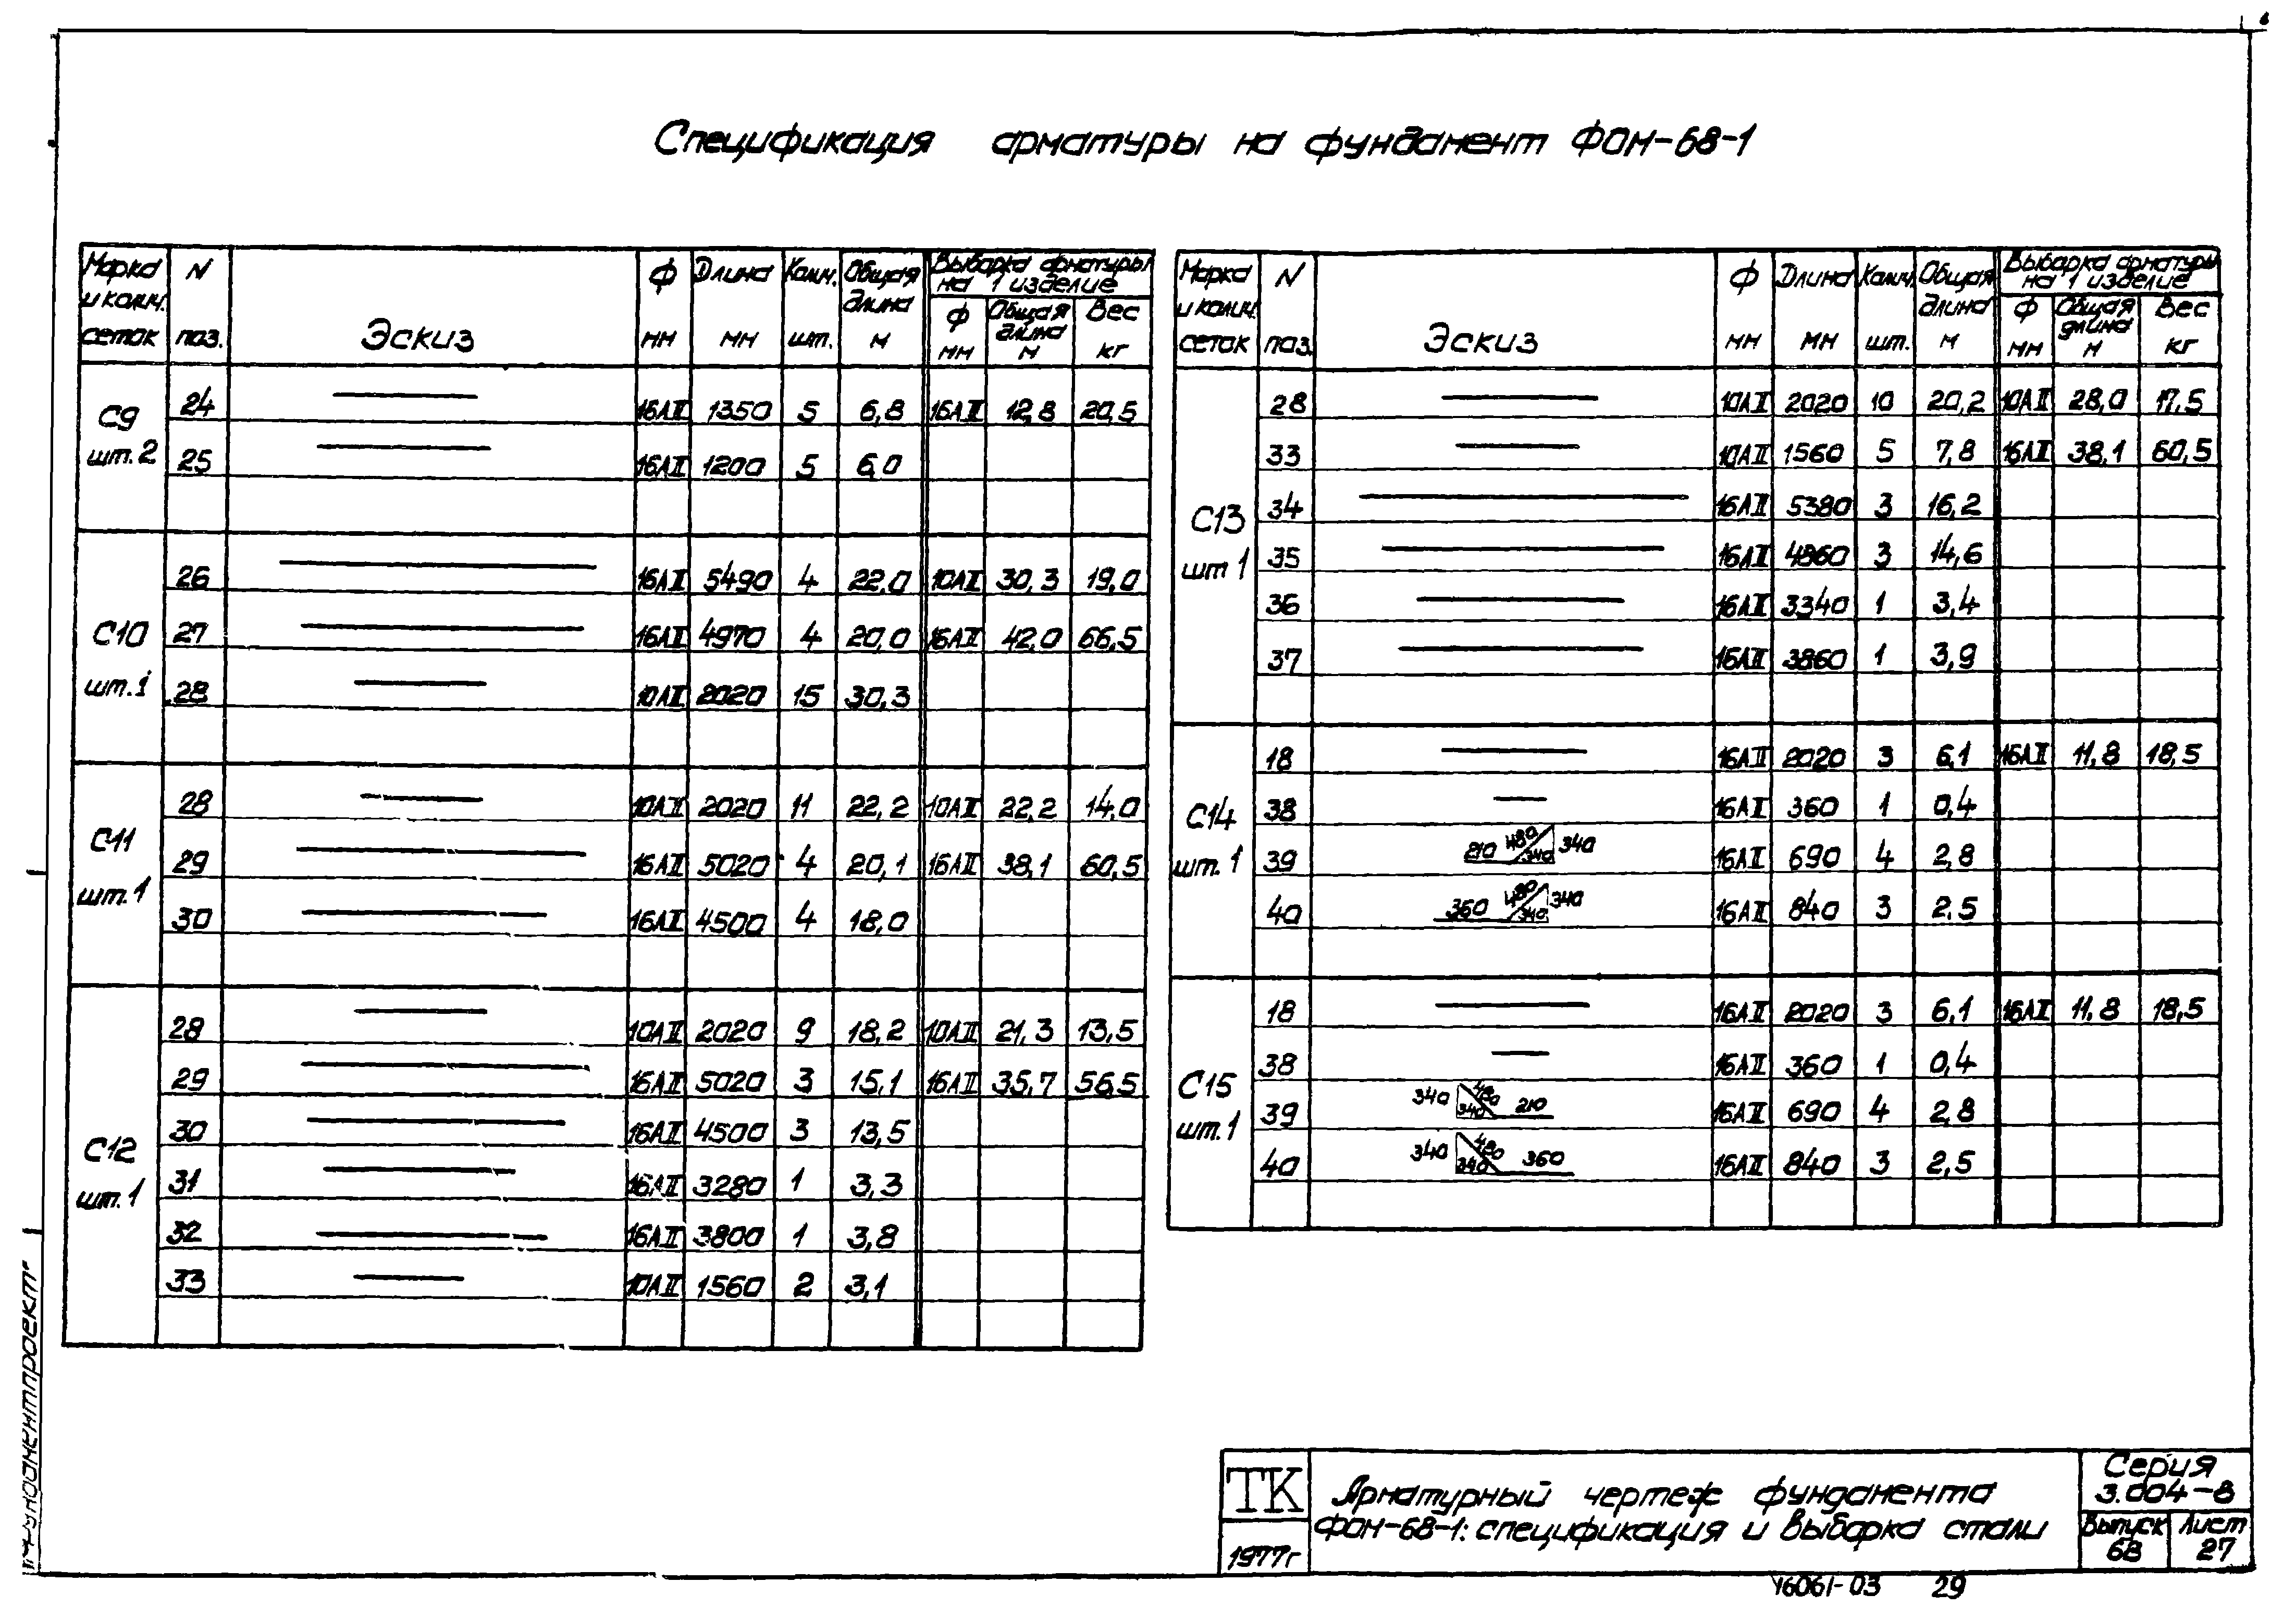 Спецификация арматуры на фундамент ФОМ-68-1
Марка и колич. сеток N поз. Эскиз Ф мм Длина мм Колич. шт. Общая длина м Выборка арматуры на 1 изделие Ф мм Общая длина м Вес кг
С9 шт.2
24 16АII 1350 5 6,8 16АII 12,8 20,5
25 16АII 1200 5 6,0
С10 шт.1
26 16АII 5490 4 22,0 10АII 30,3 19,0
27 16АII 4970 4 20,0 16АII 42,0 66,5
28 10АII 2020 15 30,3
С11 шт.1
28 10АII 2020 11 22,2 10АII 22,2 14,0
29 16АII 5020 4 20,1 16АII 38,1 60,5
30 16АII 4500 4 18,0
С12 шт.1
28 10АII 2020 9 18,2 10АII 21,3 13,5
29 16АII 5020 3 15,1 16АII 35,7 56,5
30 16АII 4500 3 13,5
31 16АII 3280 1 3,3
32 16АII 3800 1 3,8
33 10АII 1560 2 3,1
Марка и колич. сеток N поз. Эскиз Ф мм Длина мм Колич. шт. Общая длина м Выборка арматуры на 1 изделие Ф мм Общая длина м Вес кг
С13 шт 1
28 10АII 2020 10 20,2 10АII 28,0 17,5
33 10АII 1560 5 7,8 16АII 38,1 60,5
34 16АII 5380 3 16,2
35 16АII 4860 3 14,6
36 16АII 3340 1 3,4
37 16АII 3860 1 3,9
С14 шт.1
18 16АII 2020 3 6,1 16АII 11,8 18,5
38 16АII 360 1 0,4
39 210 480 340 340 16АII 690 4 2,8
40 360 480 340 340 16АII 840 3 2,5
С15 шт.1
18 16АII 2020 3 6,1 16АII 11,8 18,5
38 16АII 360 1 0,4
39 340 340 480 210 16АII 690 4 2,8
40 340 340 480 360 16АII 840 3 2,5
ТК
1977г
Арматурный чертеж фундамента
ФОМ-68-1: спецификация и выборка стали
Серия
3.004-8
Выпуск 68
Лист 27
16061-03 29